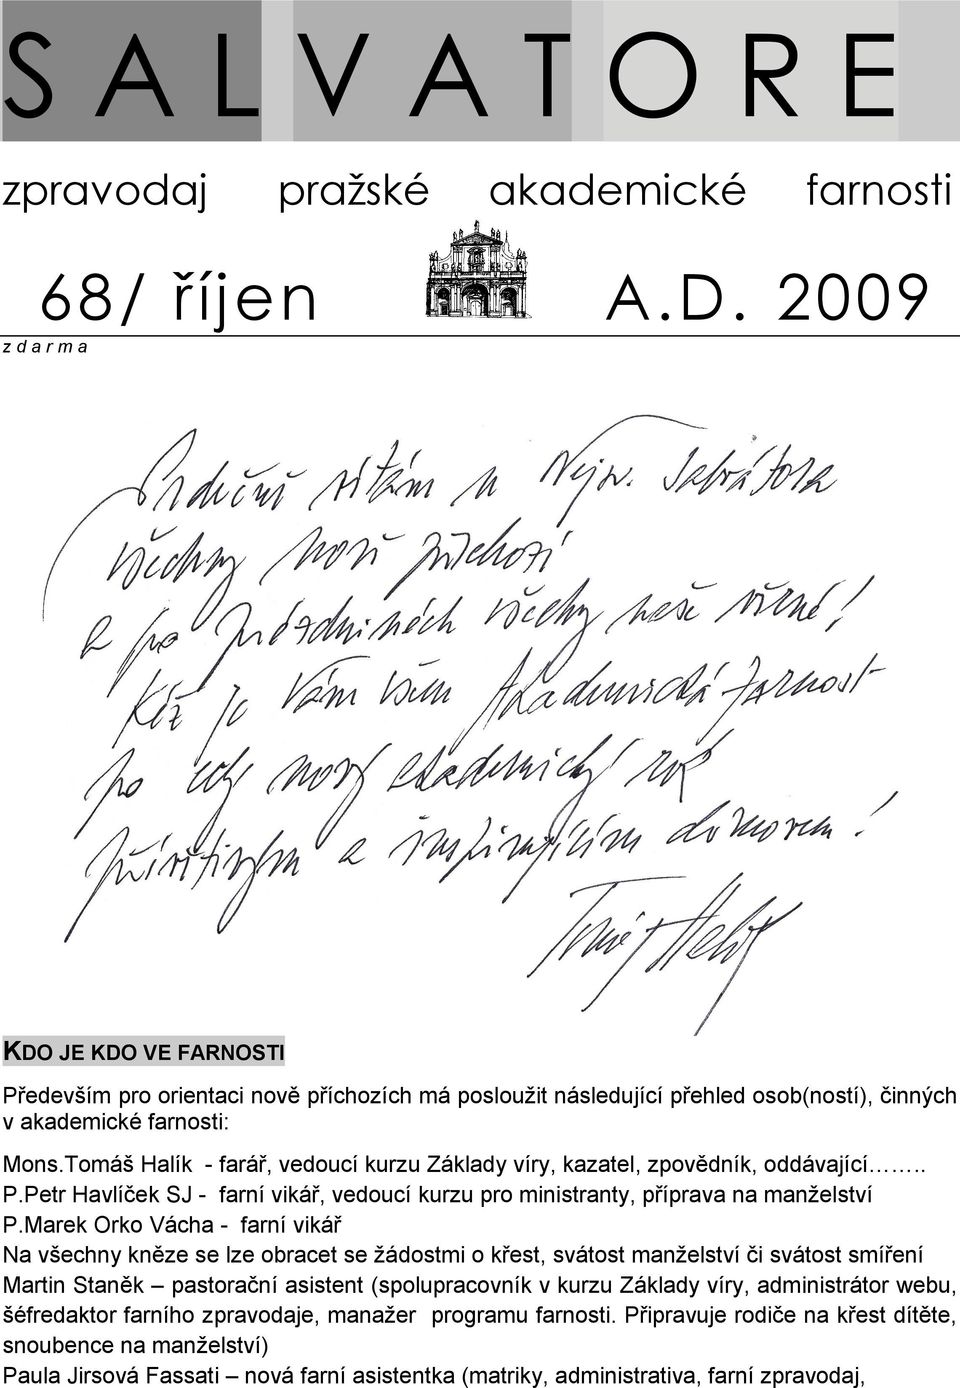 SALVATORE
zpravodaj pražské akademické farnosti
68/ říjen A.D. 2009
zdarma
Srdečně vítám u Nejsv. Salvátora
všechny nově příchozí
a po prázdninách všechny naše věrné!
Kéž je Vám všem Akademická farnost
po celý nový akademický rok
přívětivým a inspirujícím domovem!
Tomáš Halík
KDO JE KDO VE FARNOSTI
Především pro orientaci nově příchozích má posloužit následující přehled osob(ností), činných
v akademické farnosti:
Mons.Tomáš Halík - farář, vedoucí kurzu Základy víry, kazatel, zpovědník, oddávající……..
P.Petr Havlíček SJ - farní vikář, vedoucí kurzu pro ministranty, příprava na manželství
P.Marek Orko Vácha - farní vikář
Na všechny kněze se lze obracet se žádostmi o křest, svátost manželství či svátost smíření
Martin Staněk – pastorační asistent (spolupracovník v kurzu Základy víry, administrátor webu,
šéfredaktor farního zpravodaje, manažer programu farnosti. Připravuje rodiče na křest dítěte,
snoubence na manželství)
Paula Jirsová Fassati – nová farní asistentka (matriky, administrativa, farní zpravodaj,